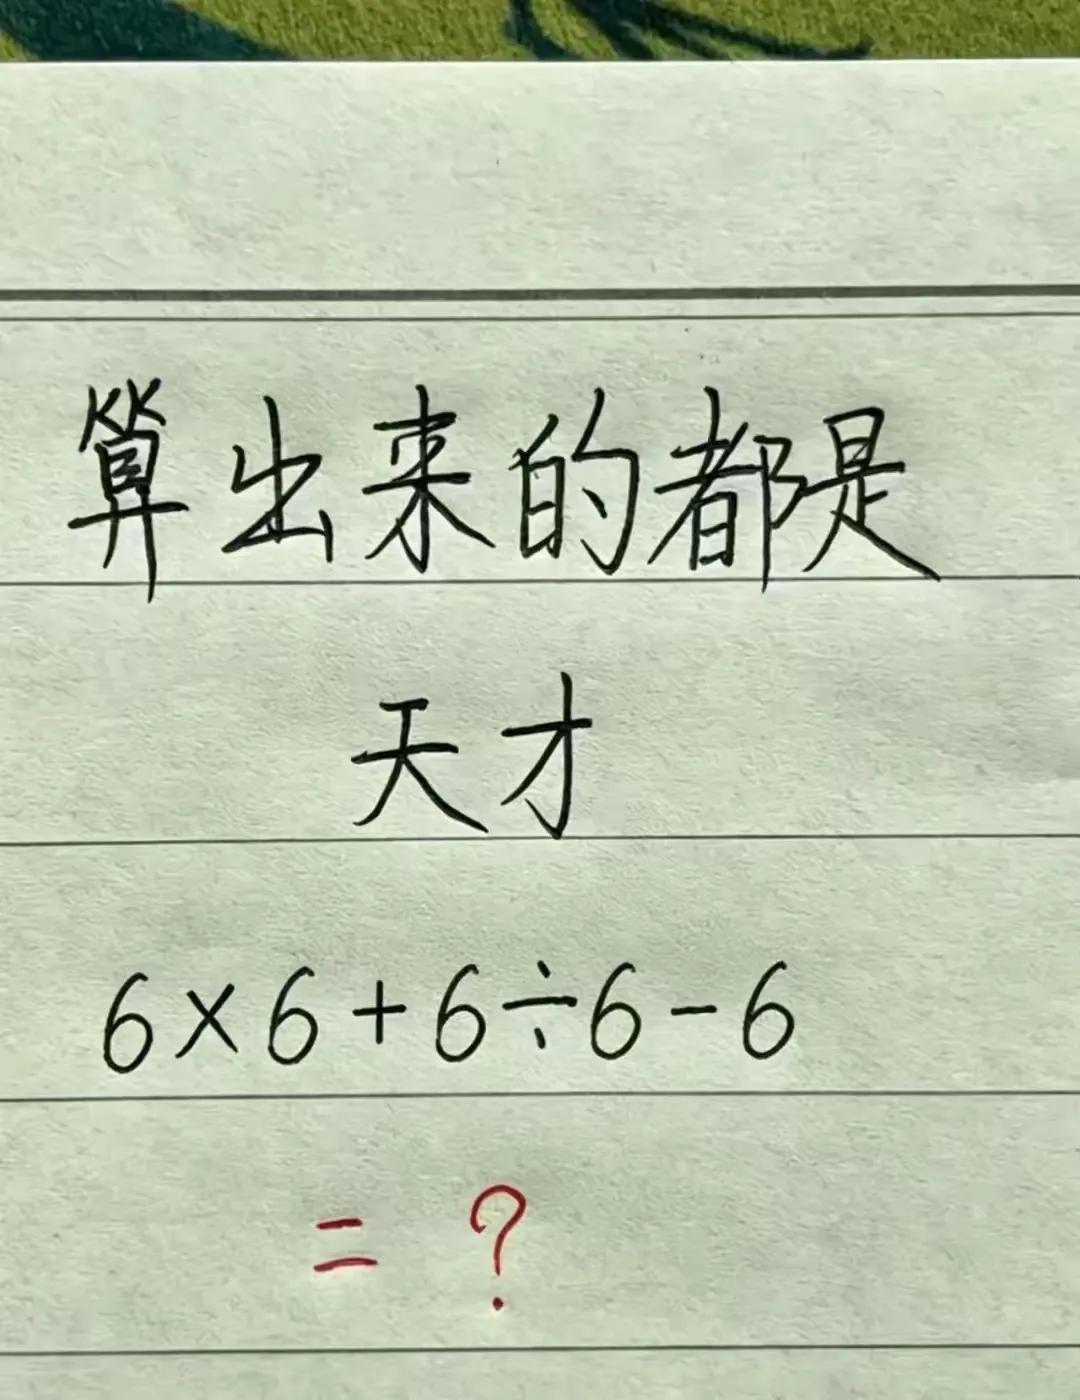 算出来的都是
天才
6×6+6÷6-6
= ?